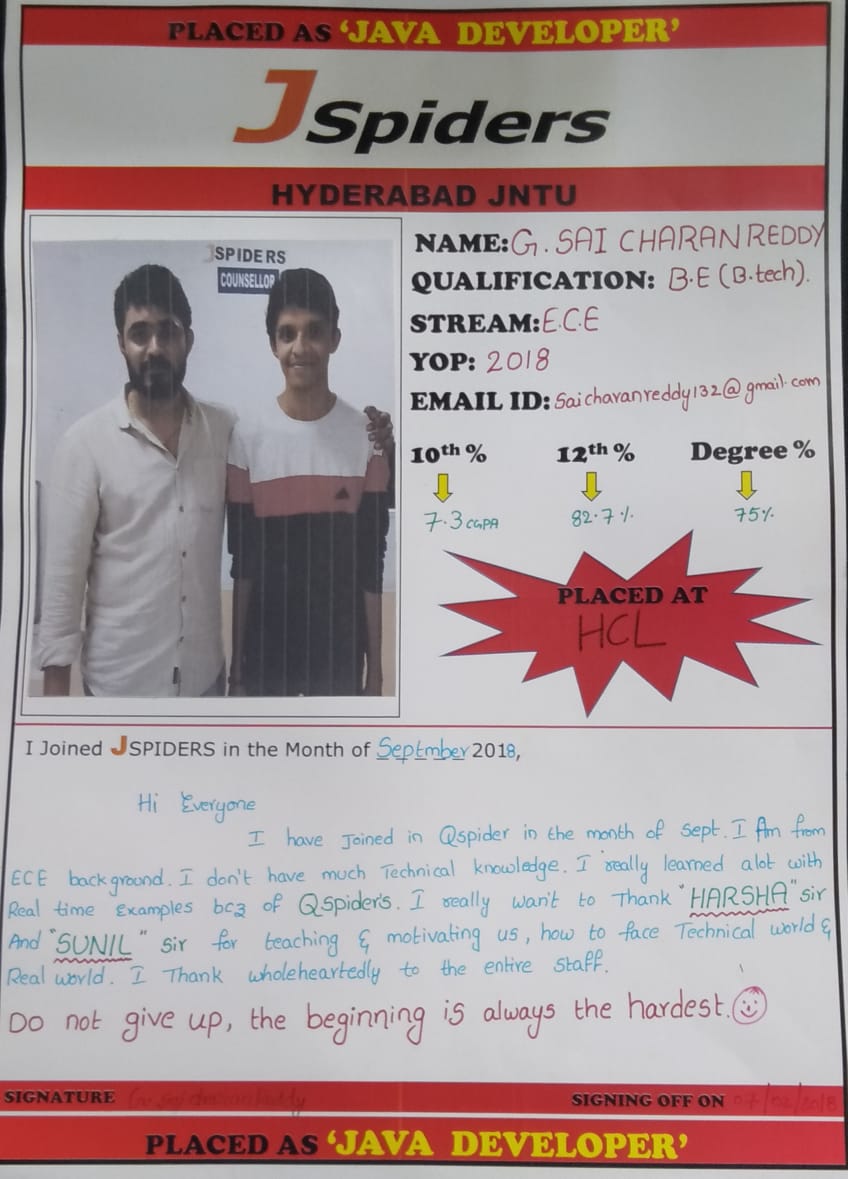 PLACED AS ‘JAVA DEVELOPER’
JSpiders
HYDERABAD JNTU
JSPIDERS
COUNSELLOR
NAME: G. SAI CHARAN REDDY
QUALIFICATION: B.E (B.tech).
STREAM: E.C.E
YOP: 2018
EMAIL ID: Saicharanreddy132@gmail.com
10th % 12th % Degree %
7.3 CGPA 82.7% 75%
PLACED AT
HCL
I Joined JSPIDERS in the Month of Septmber 2018,
Hi Everyone
I have Joined in Qspider in the month of Sept. I Am from
ECE background. I don't have much Technical knowledge. I really learned alot with
Real time Examples bcz of Qspider's. I really wan't to Thank "HARSHA" sir
And "SUNIL" sir for teaching & motivating us, how to face Technical world &
Real world. I Thank wholeheartedly to the entire staff.
Do not give up, the beginning is always the hardest.
SIGNATURE G. Sai charan Reddy SIGNING OFF ON 07/02/2018
PLACED AS ‘JAVA DEVELOPER’